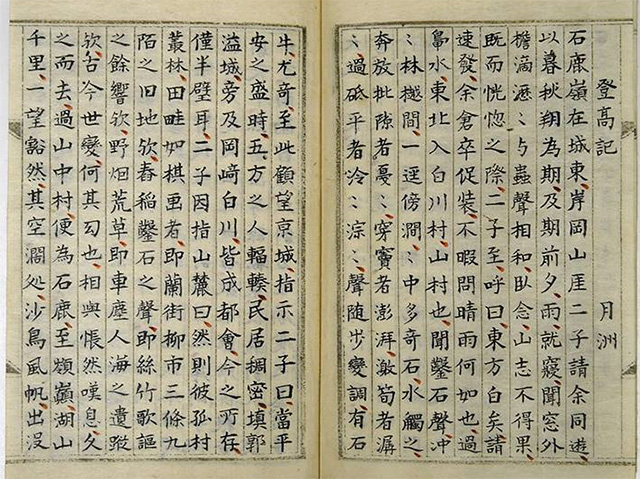 登高記　月洲
石鹿嶺在城東岸岡山涯二子請余同遊
以暮秋翔為期及期前夕雨就寢聞窓外
檐滴瀝〻与蟲聲相和臥念山志不得果
既而恍惚之際二子至呼曰東方白矣請
速發余倉卒促裝不暇問晴雨何如也過
鳧水東北入白川村山村也聞鑿石聲冲
〻林樾間一逕傍澗〻中多奇石水觸之
奔放批隙者戞〻穿竇者澎湃激筍者潺
〻過砥平者泠〻淙〻聲随歩變調有石
牛尤奇至此顧望京城指示二子曰當平
安之盛時五方之人輻輳民居稠密填郭
溢城旁及岡崎白川皆成都會今之所存
僅半壁耳二子因指山麓曰然則彼孤村
叢林田畦如棋畫者即蘭街柳市三條九
陌之旧地欤舂稲鑿石之聲即絲竹歌謳
之餘響欤野畑荒草即車塵人海之遺蹤
欤古今世變何其匆也相與悵然嘆息久
之而去過山中村便為石鹿至頬巓湖山
千里一望豁然其空濶処沙鳥風帆出没